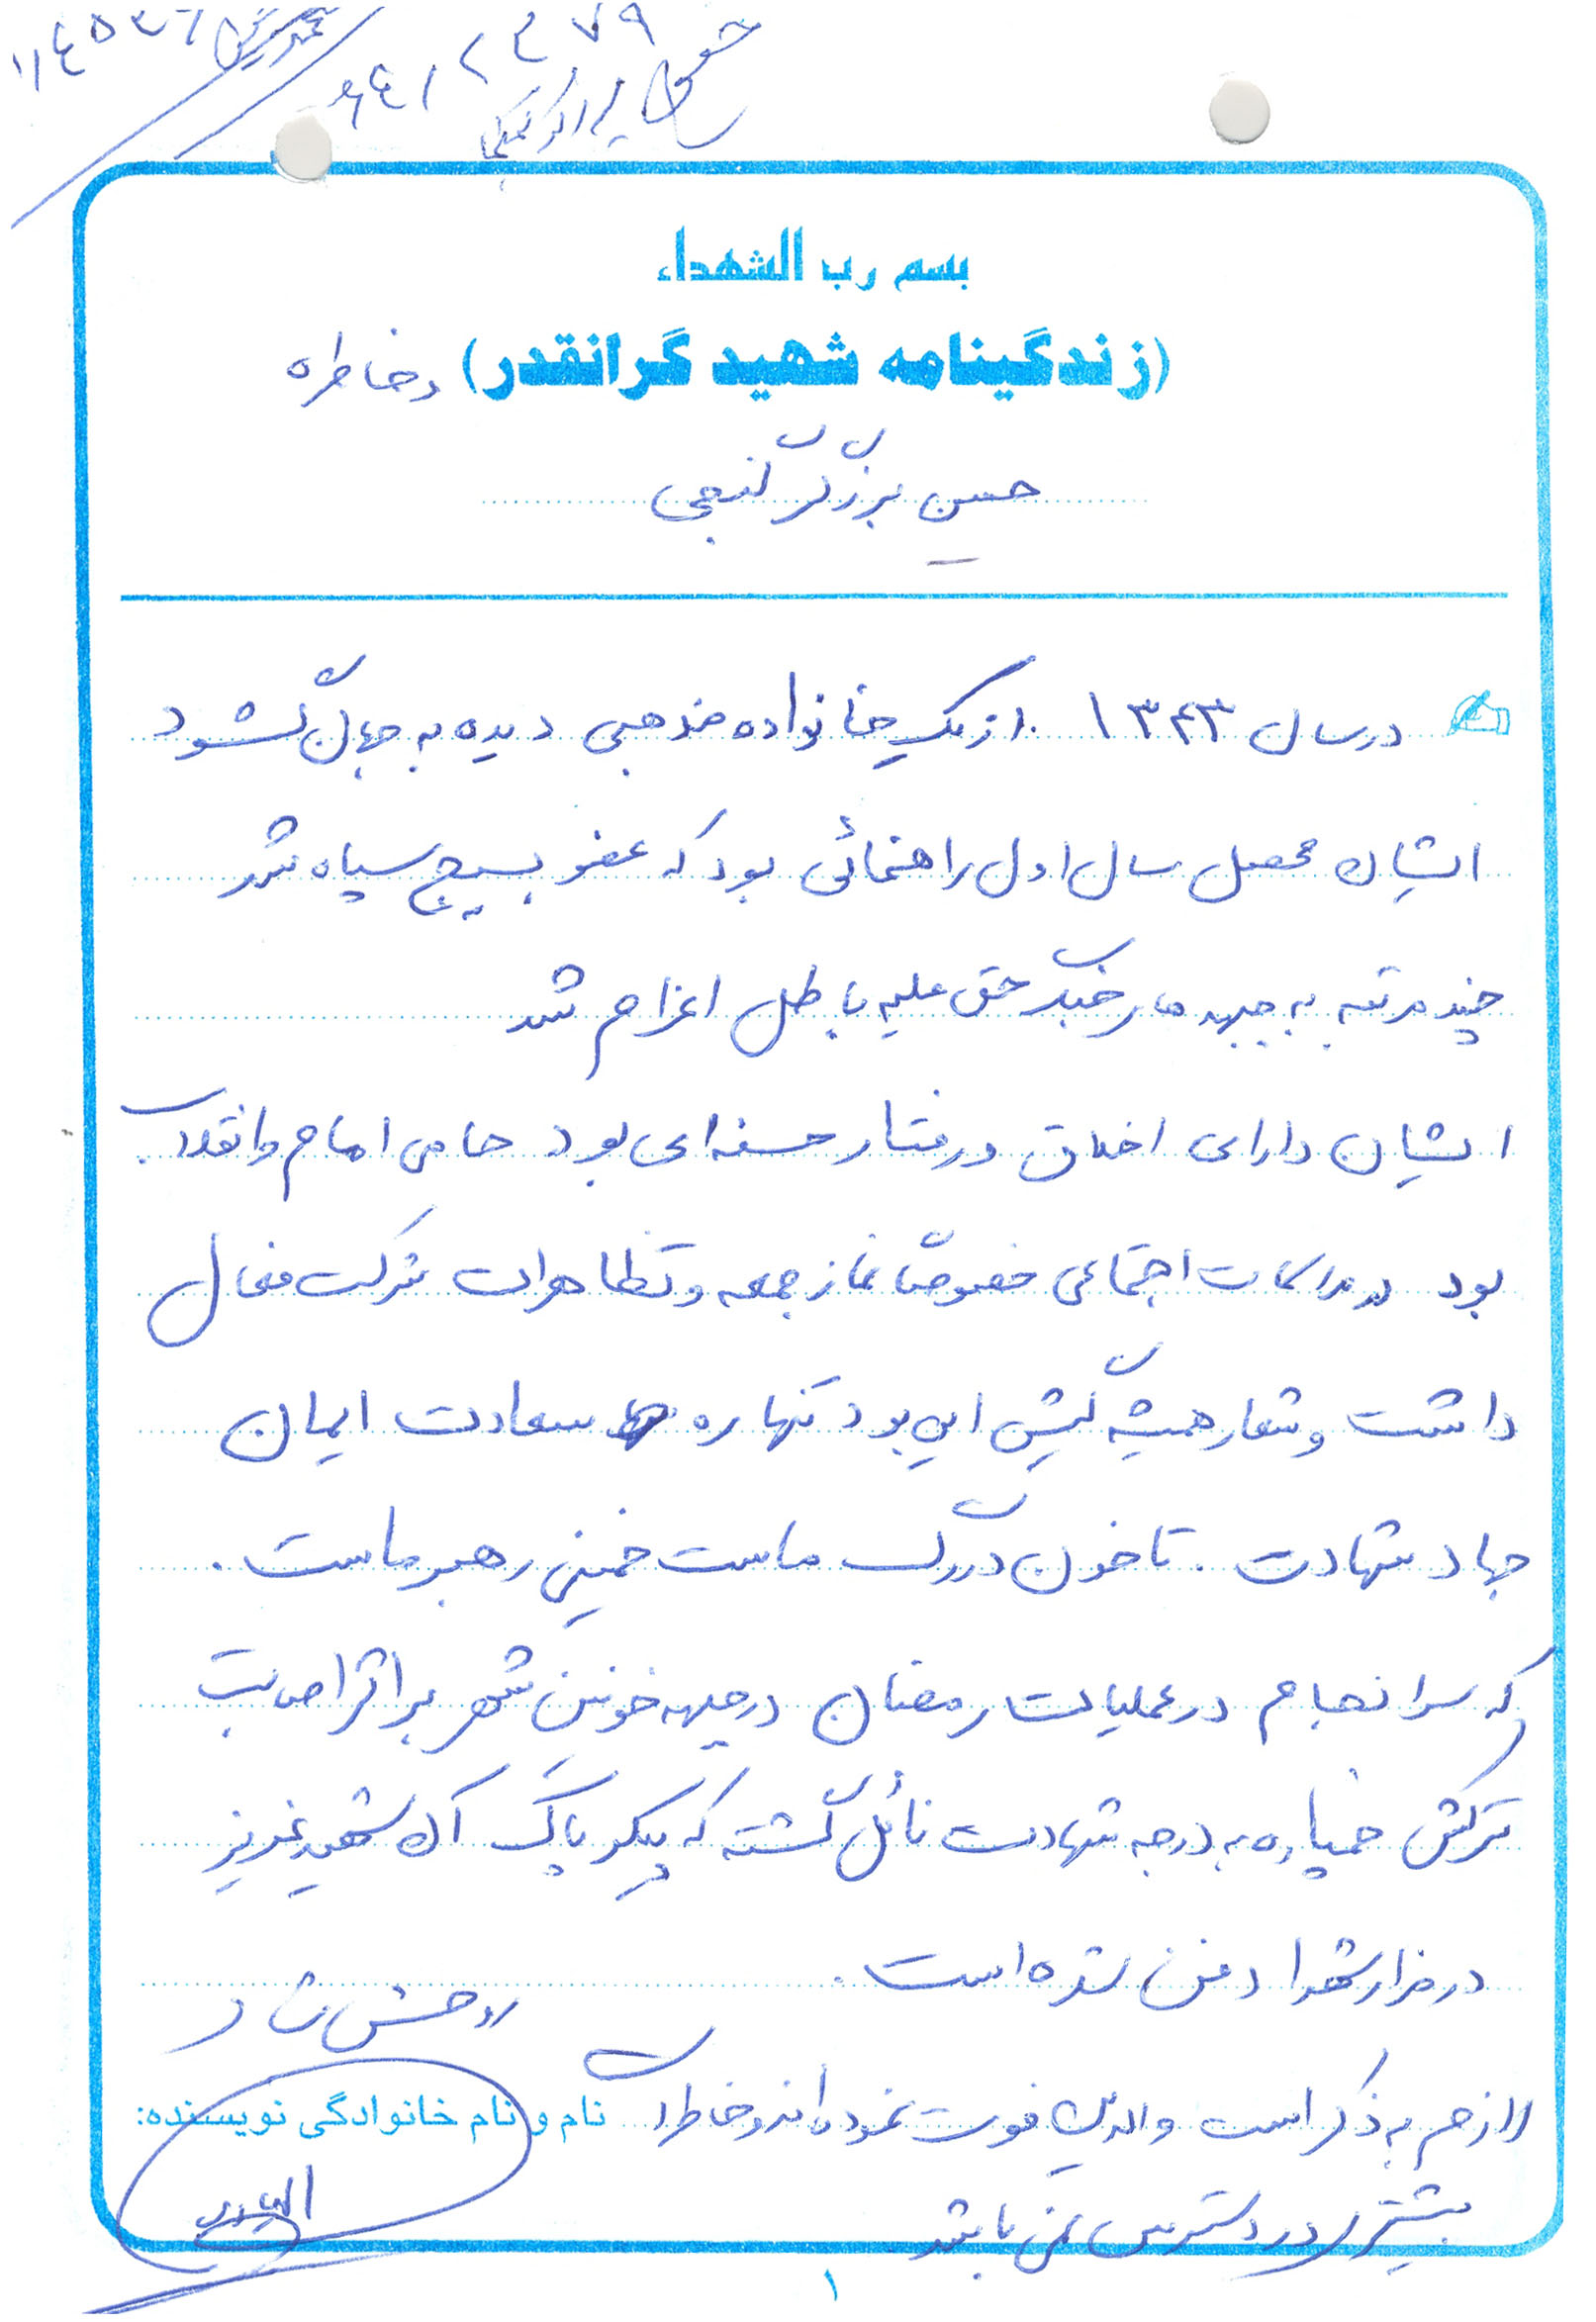 بسم رب الشهداء
(زندگینامه شهید گرانقدر) وخاطره
حسن برزگر گنجی
درسال ۱۳۴۳ از یک خانواده مذهبی دیده به جهان گشود
ایشان محصل سال اول راهنمائی بود که عضو بسیج سپاه شد
چند مرتبه به جبهه های جنگ حق علیه باطل اعزام شد
ایشان دارای اخلاق ورفتار حسنه ای بود حامی امام وانقلاب
بود در مراسمات اجتماعی خصوصاً نماز جمعه و تظاهرات شرکت فعال
داشت وشعار همیشه گیش این بود تنها ره سعادت ایمان
جهاد شهادت . تا خون در رگ ماست خمینی رهبر ماست .
که سرانجام در عملیات رمضان در جبهه خونین شهر بر اثر اصابت
ترکش خمپاره به درجه شهادت نائل گشته که پیکر پاک آن شهید عزیز
در مزار شهدا دفن شده است .
روحش شاد
لازم به ذکر است والدین فوت نموده اند وخاطرات
نام و نام خانوادگی نویسنده:
بیشتری در دسترس نمی باشد
۱